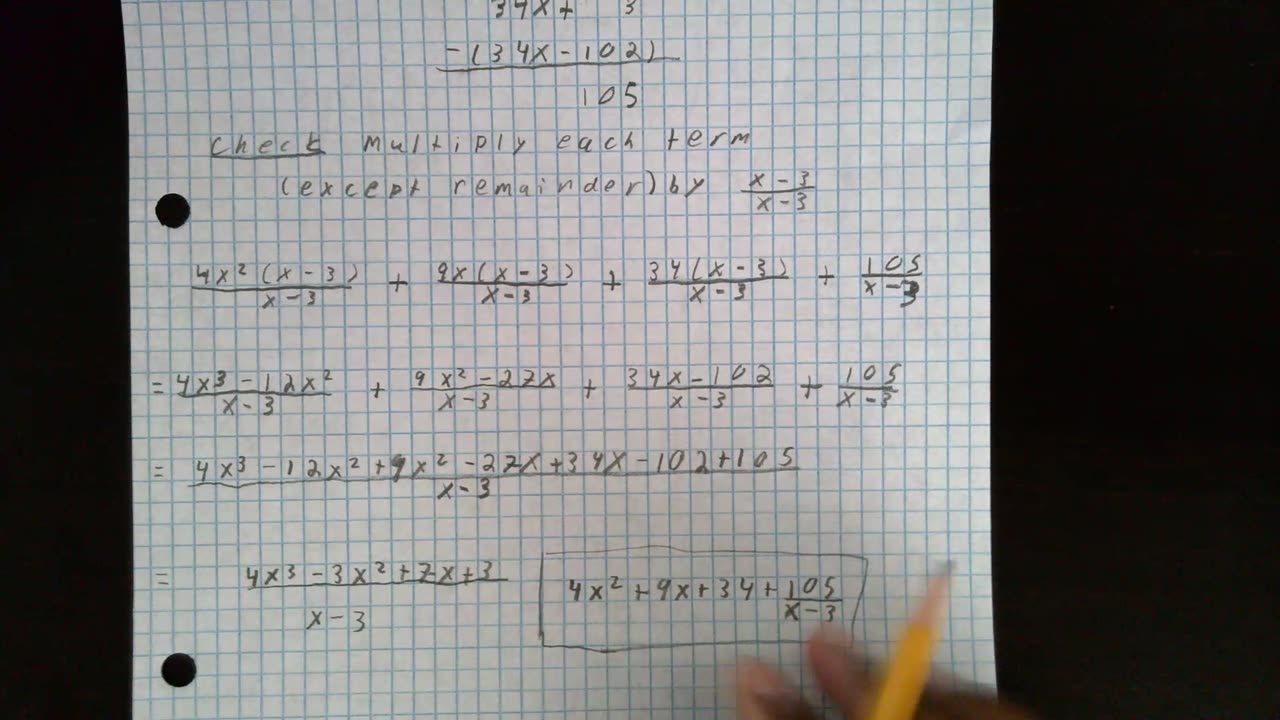 34x + 3
-(34x - 102)
105
Check Multiply each term
(except remainder) by x-3/x-3
4x²(x-3)/x-3 + 9x(x-3)/x-3 + 34(x-3)/x-3 + 105/x-3
= 4x³-12x²/x-3 + 9x²-27x/x-3 + 34x-102/x-3 + 105/x-3
= 4x³-12x²+9x²-27x+34x-102+105/x-3
= 4x³-3x²+7x+3/x-3 4x²+9x+34+105/x-3